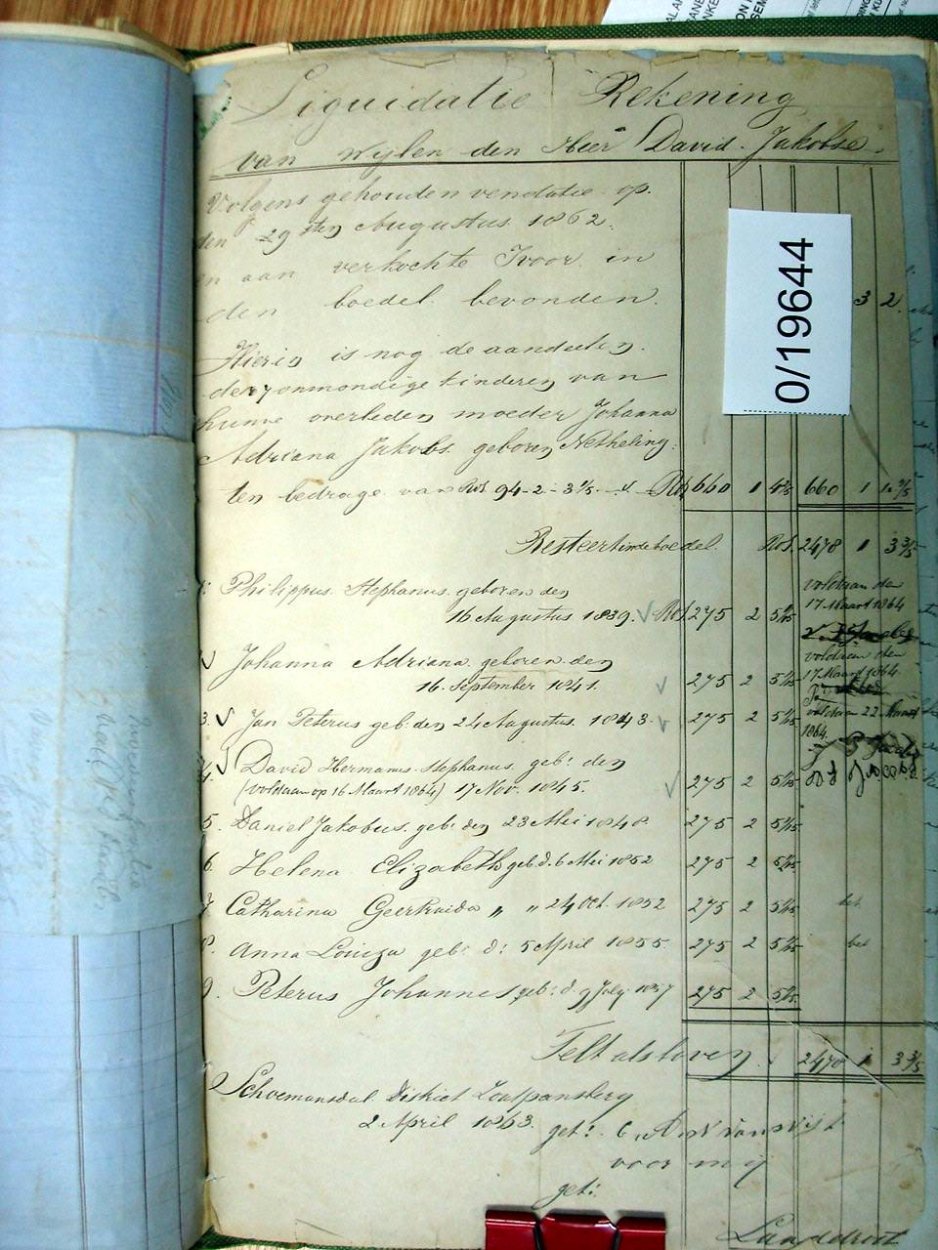 Liquidatie Rekening
van wijlen den Heer David Jakobse.
Volgens gehouden vendutie op
den 29sten Augustus 1862.
en aan verkochte Ivoor in
den boedel bevonden.
3 2.
0/19644
Hierin is nog de aandeelen
der onmondige kinderen van
hunne overleden moeder Johanna
Adriana Jakobs geboren Netheling
ten bedrage van Rds 94-2-3 Rds 660 1 660 1
Resteert in de boedel. Rds. 2478 1 3 3/5
Philippus Stephanus geboren den
16 Augustus 1839. Rds 275 2
voldaan den
17 Maart 1864
Johanna Adriana geboren den
16 September 1841. 275 2
voldaan den
17 Maart 1864.
3. Jan Peterus geb: den 24 Augustus 1843. 275 2
voldaan 22 Maart
1864.
4. David Hermanus Stephanus geb: den
(voldaan op 16 Maart 1864) 17 Nov. 1845. 275 2
5. Daniel Jakobus. geb: den 23 Mei 1848 275 2
6. Helena Elizabeth geb. d. 6 Mei 1852 275 2
7. Catharina Geertruida " " 24 Oct. 1852 275 2
8. Anna Louiza geb: d: 5 April 1855 275 2
9. Peterus Johannes geb: d. 9 July 1857 275 2
Telt als boven 2478 1 3 3/5
Schoemansdal District Zoutpansberg
2 April 1863.
get:
voor mij
get:
Landdrost